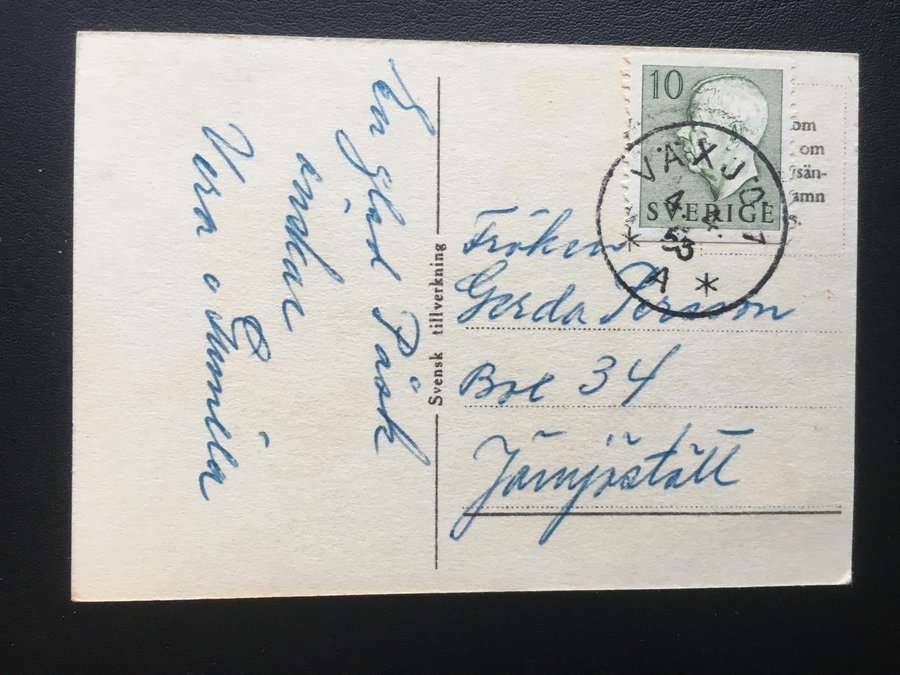 En glad Påsk
önskar
Vera o Gunilla
Svensk tillverkning
10
SVERIGE
VÄXJÖ 1
4.4.53
A
om
om
sän-
amn
Fröken
Gerda Persson
Box 34
Jämjöslätt